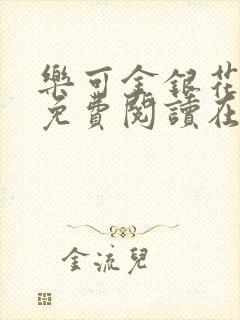 樂可金銀花
免費閱讀在
金流兒